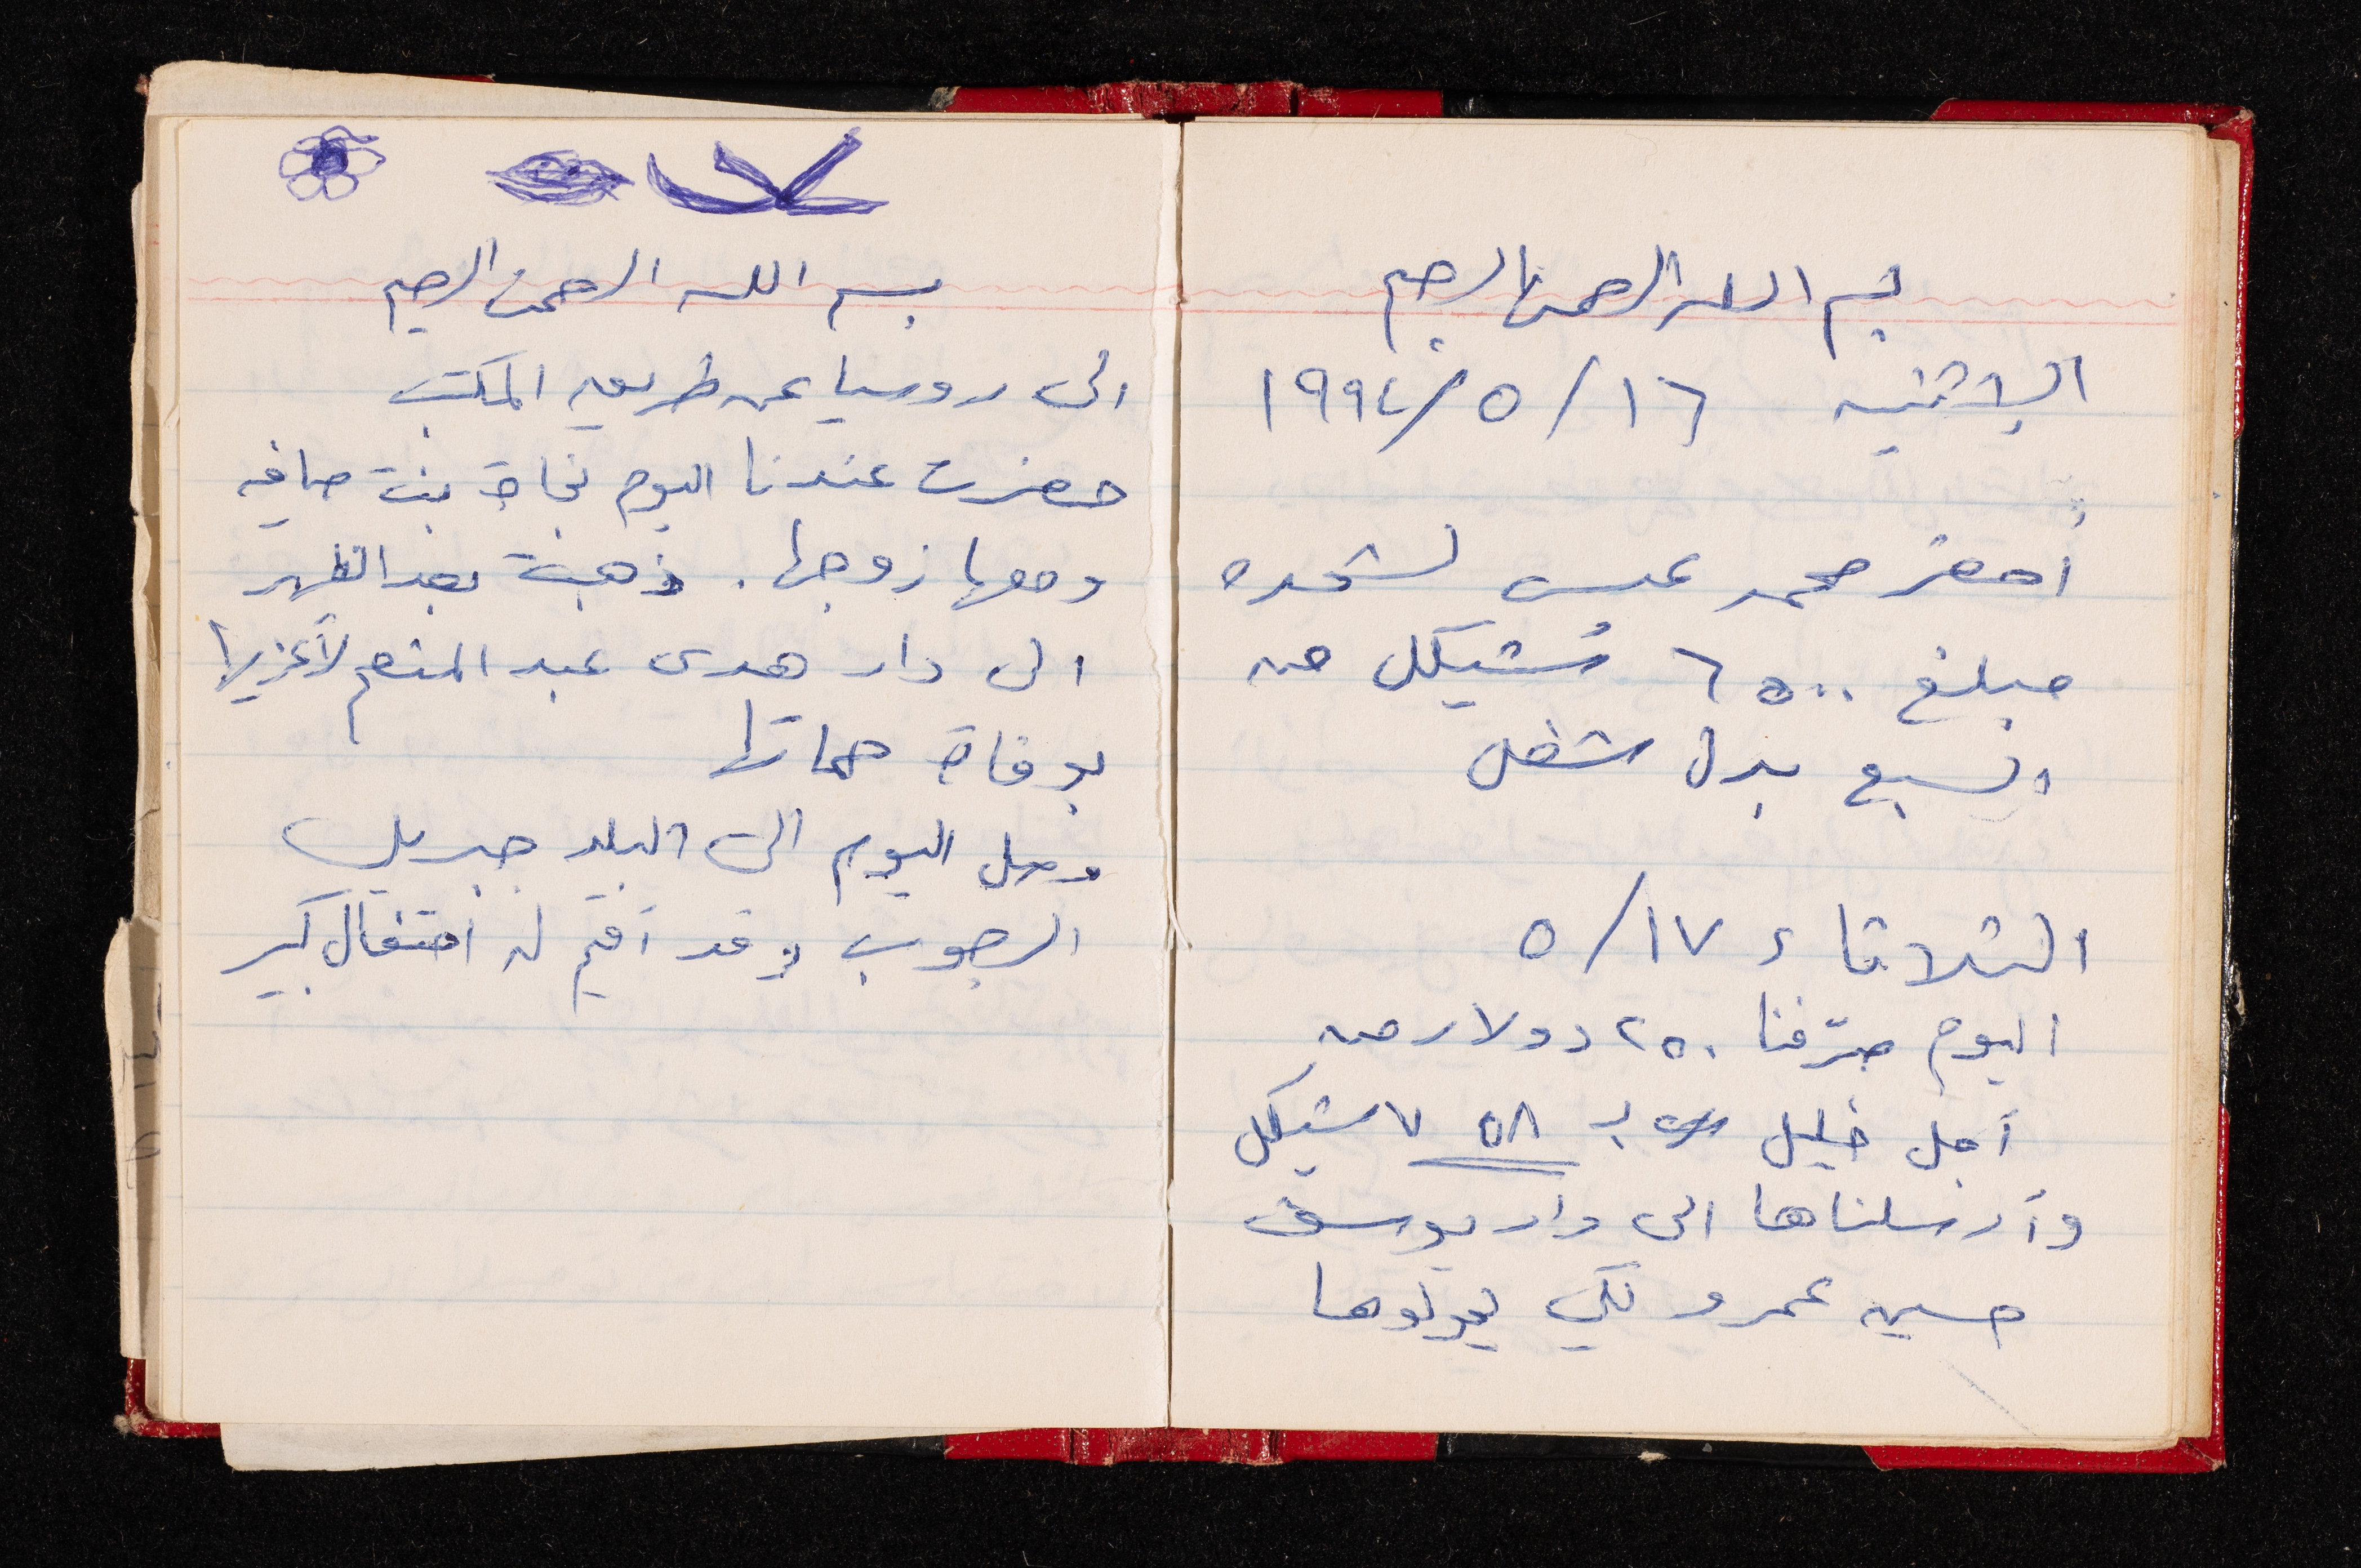 بسم الله الرحمن الرحيم
الاثنين ١٦/٥/١٩٩٤
أحضر محمد عيسى لشحده
مبلغ ٦٥٠٠ شيكل من
السبع بدل شغل
الثلاثاء ١٧/٥
اليوم صرّفنا ٢٥٠ دولار من
أجل خليل بـ ٧٥٨ شيكل
وأرسلناها الى دار يوسف
حسين عمرو لكي يحولوها
بسم الله الرحمن الرحيم
الى روسيا عن طريق المكتب
حضرت عندنا اليوم نجاة بنت صافيه
ومعها زوجها. ذهبت بعد الظهر
الى دار هدى عبد المنعم لأعزيها
بوفاة حماتها
وصل اليوم الى البلد جبريل
الرجوب وقد أقيم له احتفال كبير